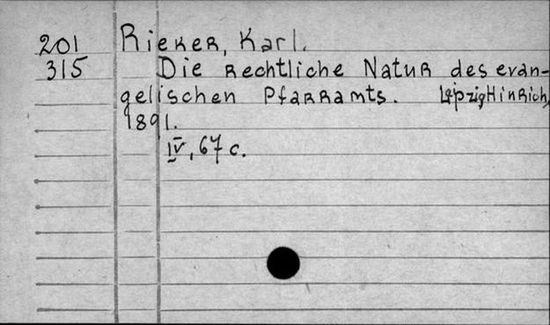 201 Rieker, Karl.
315 Die rechtliche Natur des evan-
gelischen Pfarramts. Leipzig Hinrich,
1891.
IV, 67 c.